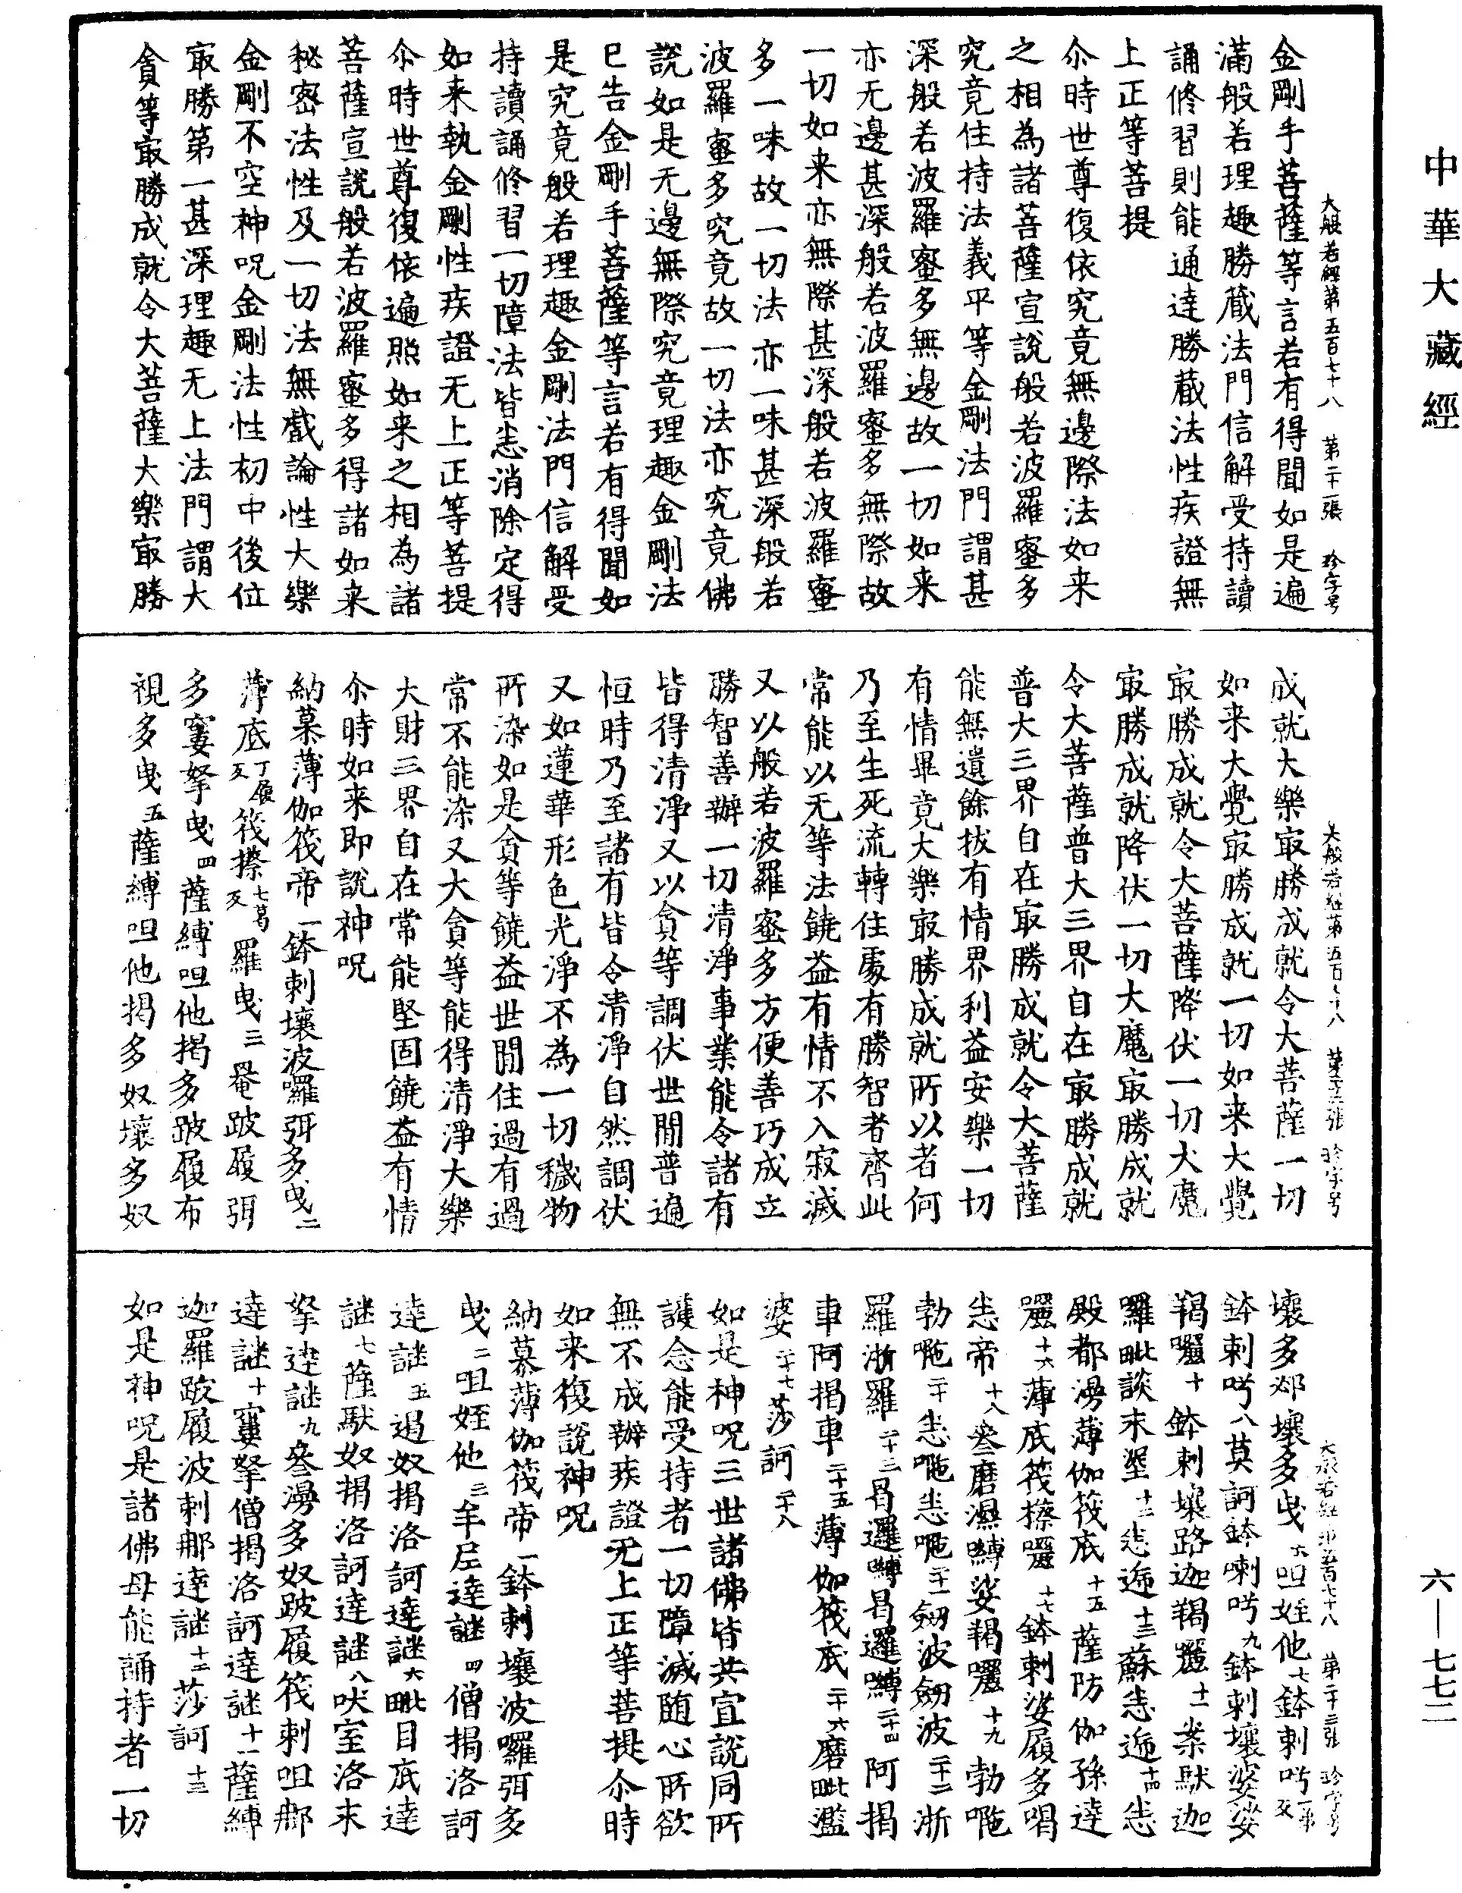 中華大藏經
六—七七二
大般若經第五百七十八　第二十一張　珍字号
金剛手菩薩等言若有得聞如是遍
滿般若理趣勝藏法門信解受持讀
誦修習則能通達勝藏法性疾證無
上正等菩提
尒時世尊復依究竟無邊際法如来
之相為諸菩薩宣說般若波羅蜜多
究竟住持法義平等金剛法門謂甚
深般若波羅蜜多無邊故一切如来
亦无邊甚深般若波羅蜜多無際故
一切如来亦無際甚深般若波羅蜜
多一味故一切法亦一味甚深般若
波羅蜜多究竟故一切法亦究竟佛
說如是无邊無際究竟理趣金剛法
已告金剛手菩薩等言若有得聞如
是究竟般若理趣金剛法門信解受
持讀誦修習一切障法皆悉消除定得
如来執金剛性疾證无上正等菩提
尒時世尊復依遍照如来之相為諸
菩薩宣說般若波羅蜜多得諸如来
秘密法性及一切法無戲論性大樂
金剛不空神呪金剛法性初中後位
㝡勝第一甚深理趣无上法門謂大
貪等㝡勝成就令大菩薩大樂㝡勝
大般若經第五百七十八　第二十二張　珍字号
成就大樂㝡勝成就令大菩薩一切
如来大覺㝡勝成就一切如来大覺
㝡勝成就令大菩薩降伏一切大魔
㝡勝成就降伏一切大魔㝡勝成就
令大菩薩普大三界自在㝡勝成就
普大三界自在㝡勝成就令大菩薩
能無遺餘拔有情界利益安樂一切
有情畢竟大樂㝡勝成就所以者何
乃至生死流轉住處有勝智者齊此
常能以无等法饒益有情不入寂滅
又以般若波羅蜜多方便善巧成立
勝智善辦一切清淨事業能令諸有
皆得清淨又以貪等調伏世間普遍
恒時乃至諸有皆令清淨自然調伏
又如蓮華形色光淨不為一切穢物
所染如是貪等饒益世間住過有過
常不能染又大貪等能得清淨大樂
大財三界自在常能堅固饒益有情
尒時如来即說神呪
納慕薄伽筏帝一鉢剌壤波囉弭多曳二
薄底丁履反筏擦七葛反羅曳三罨跛履弭
多窶拏曳四薩縛呾他揭多跛履布
視多曳五薩縛呾他揭多奴壤多奴
大般若經第五百七十八　第二十三張　珍字号
壤多邲壤多曳六呾姪他七鉢剌吽一弟反
鉢剌吽八莫訶鉢喇吽九鉢剌壤婆娑
羯囇十鉢剌壤路迦羯囇十一案馱迦
囉毗談末埿十二悉遞十三蘇悉遞十四悉
殿都漫薄伽筏底十五薩防伽孫達
囇十六薄底筏擦囇十七鉢剌娑履多喝
悉帝十八參磨濕縛娑羯囇十九勃㖿
勃㖿二十悉㖿悉㖿二十一劒波劒波二十二浙
羅浙羅二十三曷邏嚩曷邏嚩二十四阿揭
車阿揭車二十五薄伽筏底二十六磨毗濫
婆二十七莎訶二十八
如是神呪三世諸佛皆共宣說同所
護念能受持者一切障滅随心所欲
無不成辦疾證无上正等菩提尒時
如来復說神呪
納慕薄伽筏帝一鉢剌壤波囉弭多
曳二呾姪他三牟尼達謎四僧揭洛訶
達謎五遏奴揭洛訶達謎六毗目底達
謎七薩馱奴揭洛訶達謎八吠室洛末
拏達謎九參漫多奴跛履筏剌呾那
達謎十窶拏僧揭洛訶達謎十一薩縛
迦羅跛履波剌那達謎十二莎訶十三
如是神呪是諸佛母能誦持者一切